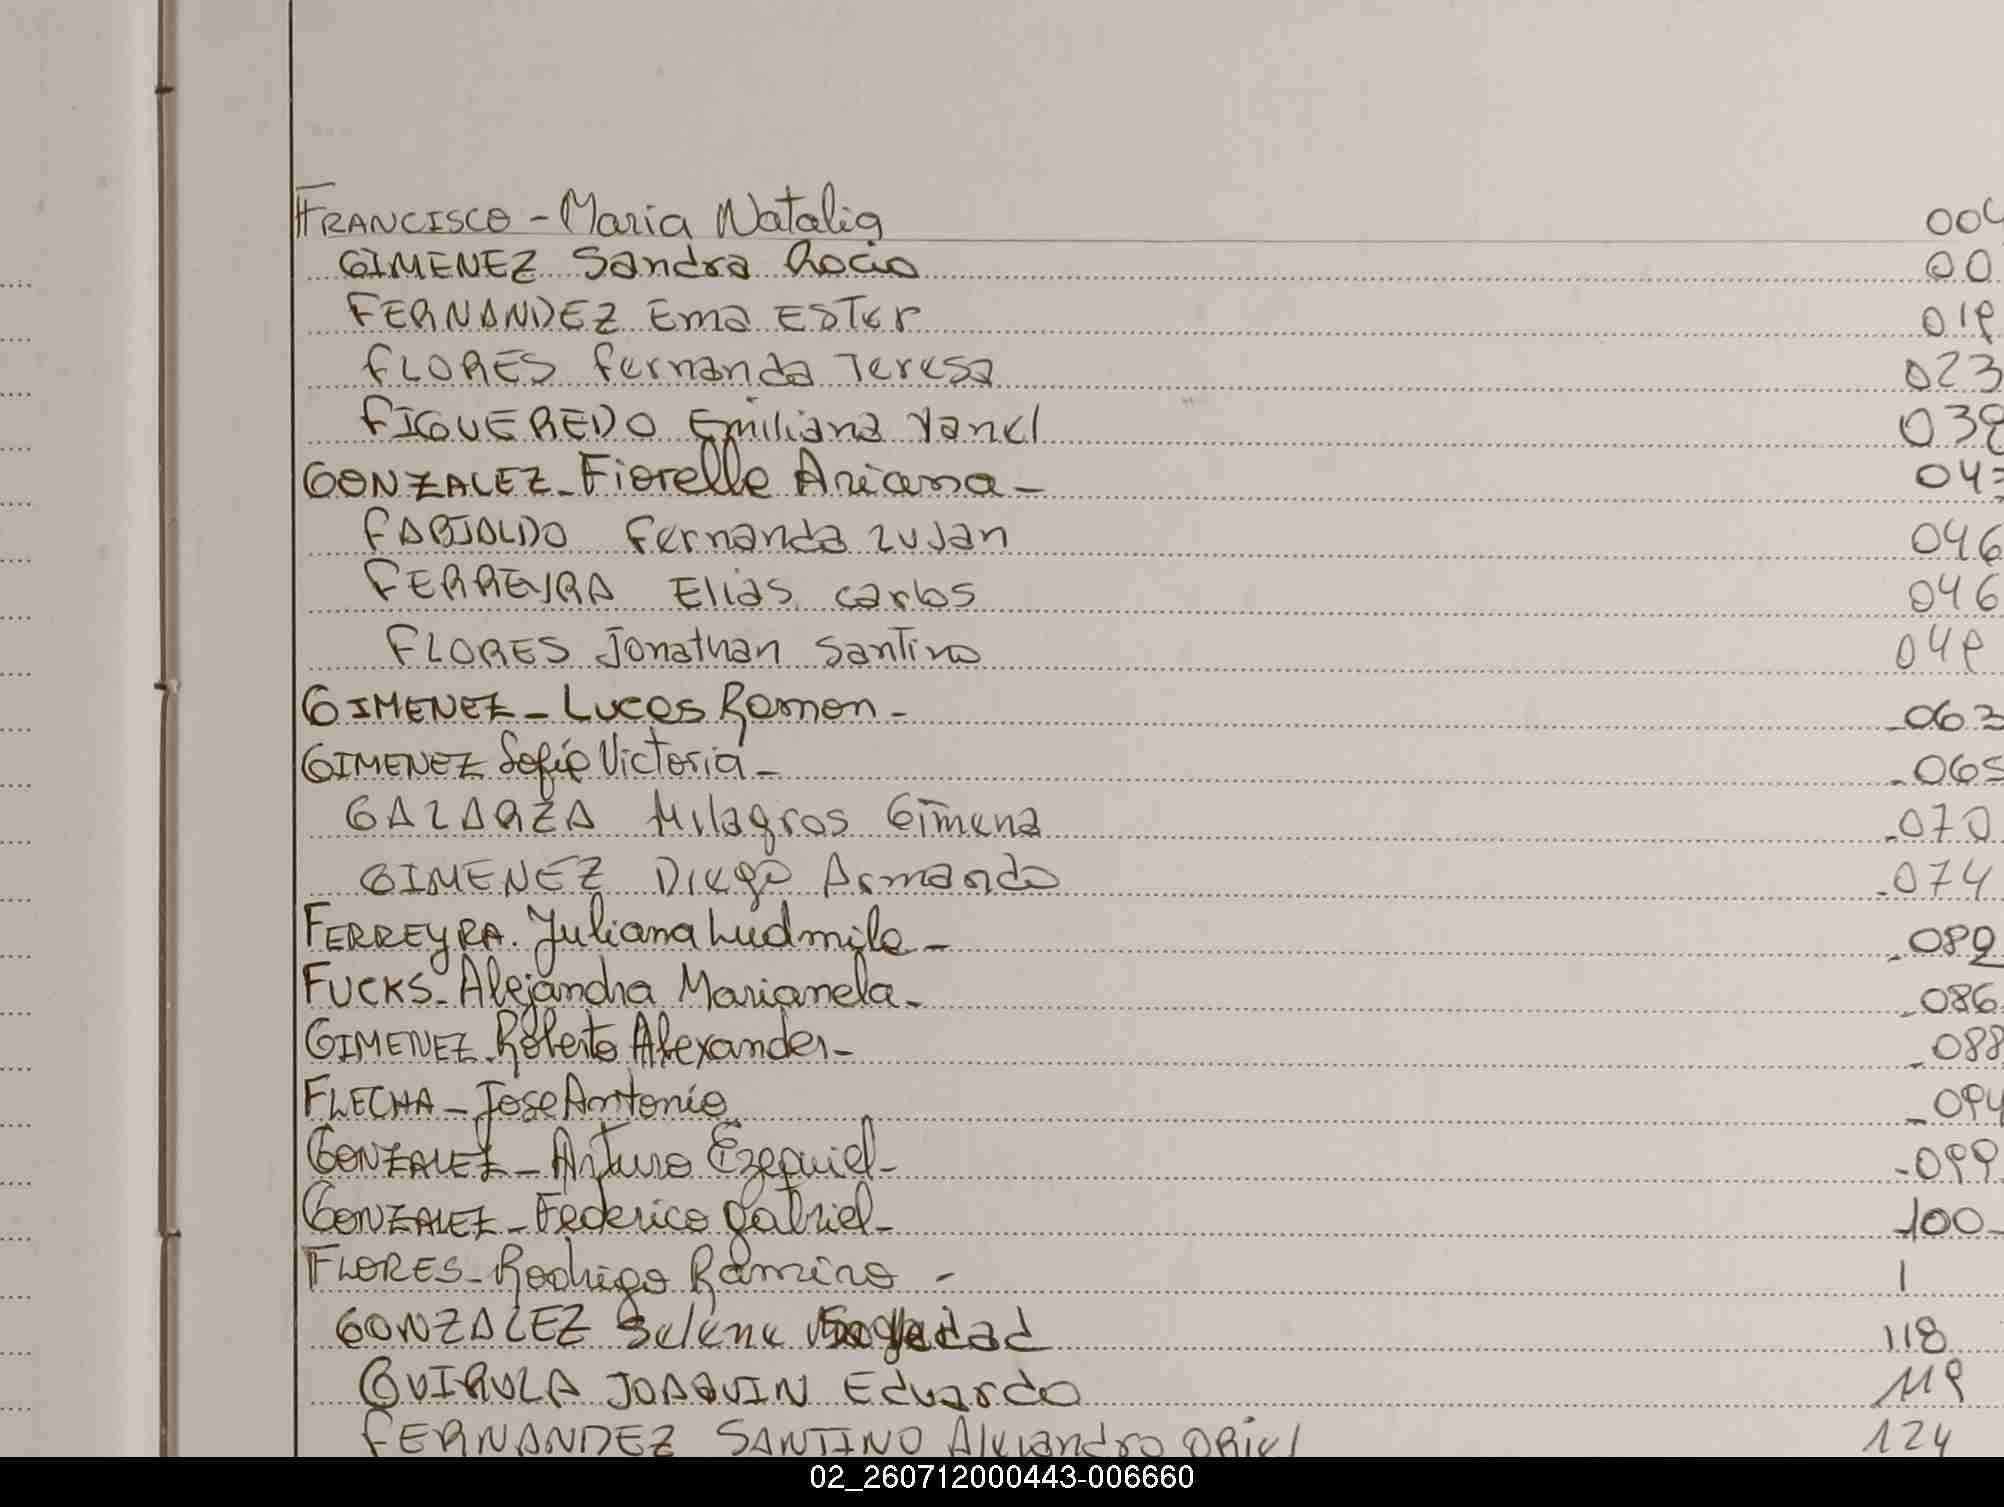 FRANCISCO - Maria Natalia 004
GIMENEZ Sandra Rocio 00
FERNANDEZ Ema Ester 019
FLORES Fernanda Teresa 023
FIGUEREDO Emiliana Yanel 039
GONZALEZ - Fiorella Ariana - 043
FABIALDO Fernanda Lujan 046
FERREYRA Elias Carlos 046
FLORES Jonathan Santino 049
GIMENEZ - Lucas Ramon - 063
GIMENEZ Sofia Victoria - 065
GALARZA Milagros Gimena 070
GIMENEZ Diego Armando 074
FERREYRA. Juliana Ludmila - 082
FUCKS - Alejandra Marianela - 086
GIMENEZ - Roberto Alexander - 088
FLECHA - Jose Antonio 094
GONZALEZ - Arturo Ezequiel - 099
GONZALEZ - Federico Gabriel - 100
FLORES - Rodrigo Ramiro - 1
GONZALEZ Selene 118
QUIRULA JOAQUIN Eduardo 119
FERNANDEZ SANTINO Alejandro ORiel 124
02_260712000443-006660